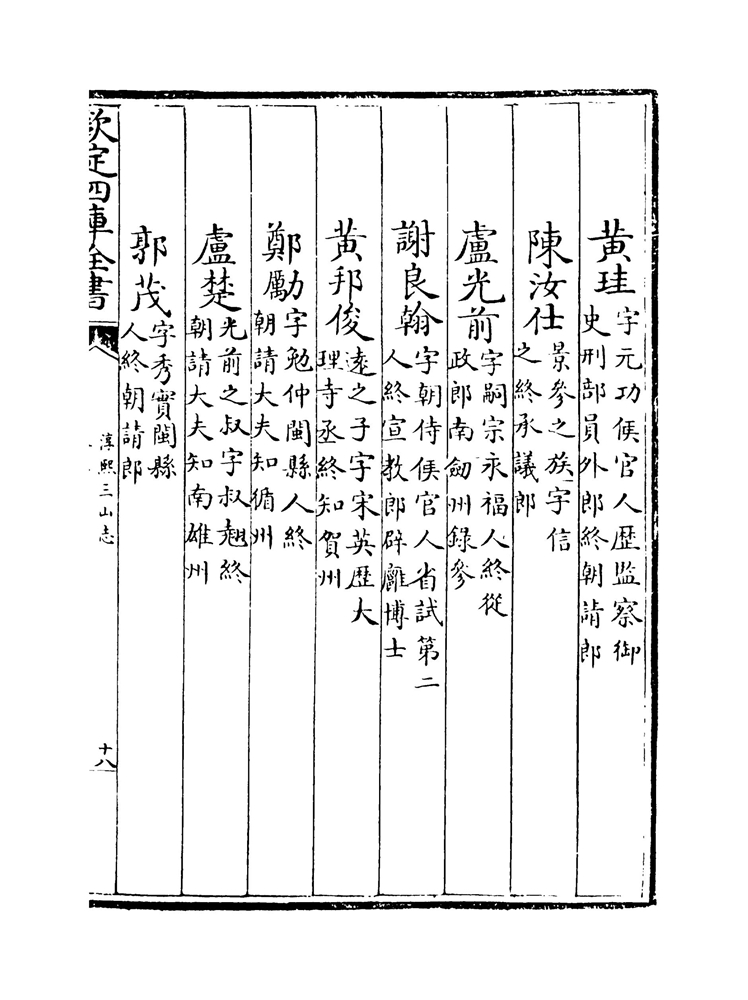 黄珪字元功侯官人歴監察御
史刑部員外郎終朝請郎
陳汝仕景參之族字信
之終承議郎
盧光前字嗣宗永福人終從
政郎南劒州錄參
謝良翰字朝侍侯官人省試第二
人終宣教郎辟廱博士
黄邦俊逺之子字宋英歴大
理寺丞終知賀州
鄭勵字勉仲閩縣人終
朝請大夫知循州
盧楚光前之叔字叔翹終
朝請大夫知南雄州
郭茂字秀實閩縣
人終朝請郎
欽定四庫全書
淳熙三山志
十八